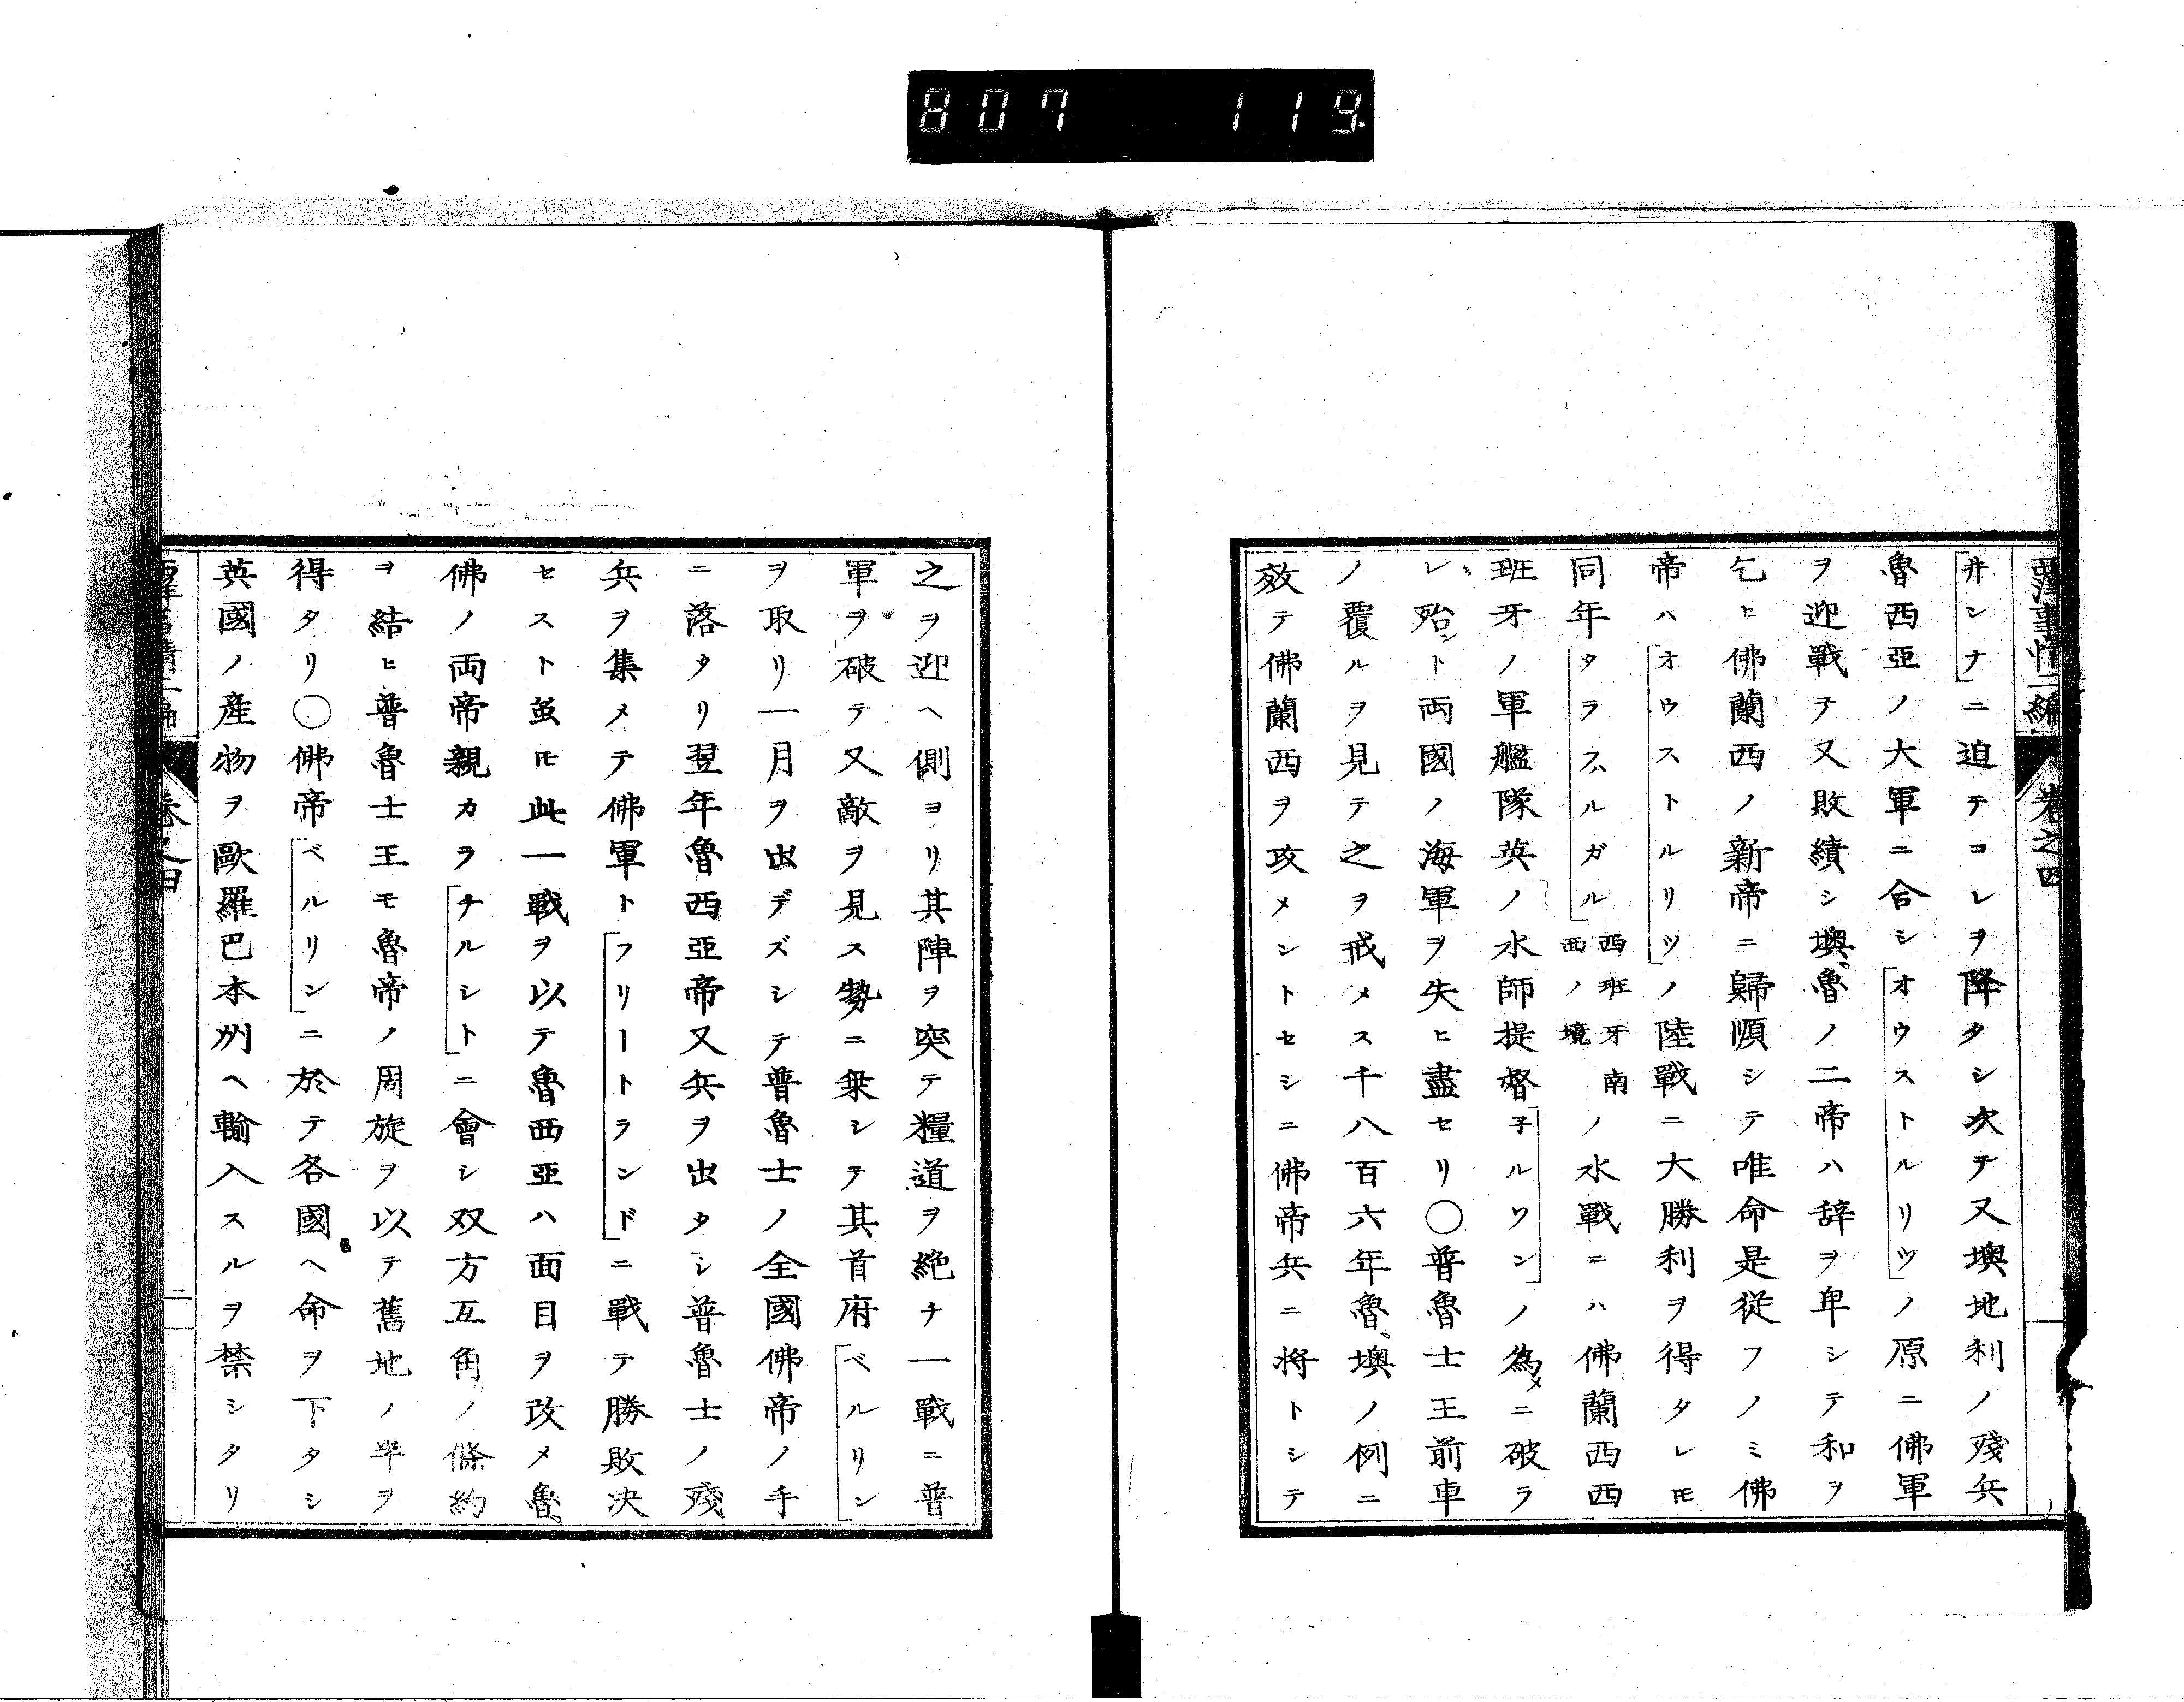 807 119.
西洋事情二編 卷之四
井ンナニ迫テコレヲ降タシ次テ又墺地利ノ殘兵
魯西亞ノ大軍ニ合シオウストルリツノ原ニ佛軍
ヲ迎戰テ又敗績シ墺魯ノ二帝ハ辞ヲ卑シテ和ヲ
乞ヒ佛蘭西ノ新帝ニ歸順シテ唯命是從フノミ佛
帝ハオウストルリツノ陸戰ニ大勝利ヲ得タレ𪜈
同年タラスルガル西班牙南西ノ境ノ水戰ニハ佛蘭西西
班牙ノ軍艦隊英ノ水師提督子ルワンノ為メニ破ラ
レ殆ント両國ノ海軍ヲ失ヒ盡セリ〇普魯士王前車
ノ覆ルヲ見テ之ヲ戒メス千八百六年魯、墺ノ例ニ
效テ佛蘭西ヲ攻メントセシニ佛帝兵ニ将トシテ
之ヲ迎ヘ側ヨリ其陣ヲ突テ糧道ヲ絶チ一戰ニ普
軍ヲ破テ又敵ヲ見ス勢ニ乗シテ其首府ベルリン
ヲ取リ一月ヲ出デズシテ普魯士ノ全國佛帝ノ手
ニ落タリ翌年魯西亞帝又兵ヲ出タシ普魯士ノ殘
兵ヲ集メテ佛軍トフリートランドニ戰テ勝敗決
セスト虽𪜈此一戰ヲ以テ魯西亞ハ面目ヲ改メ魯、
佛ノ両帝親カラチルシトニ會シ双方互角ノ條約
ヲ結ヒ普魯士王モ魯帝ノ周旋ヲ以テ舊地ノ半ヲ
得タリ〇佛帝ベルリンニ於テ各國ヘ命ヲ下タシ
英國ノ産物ヲ歐羅巴本州ヘ輸入スルヲ禁シタリ
卷之四